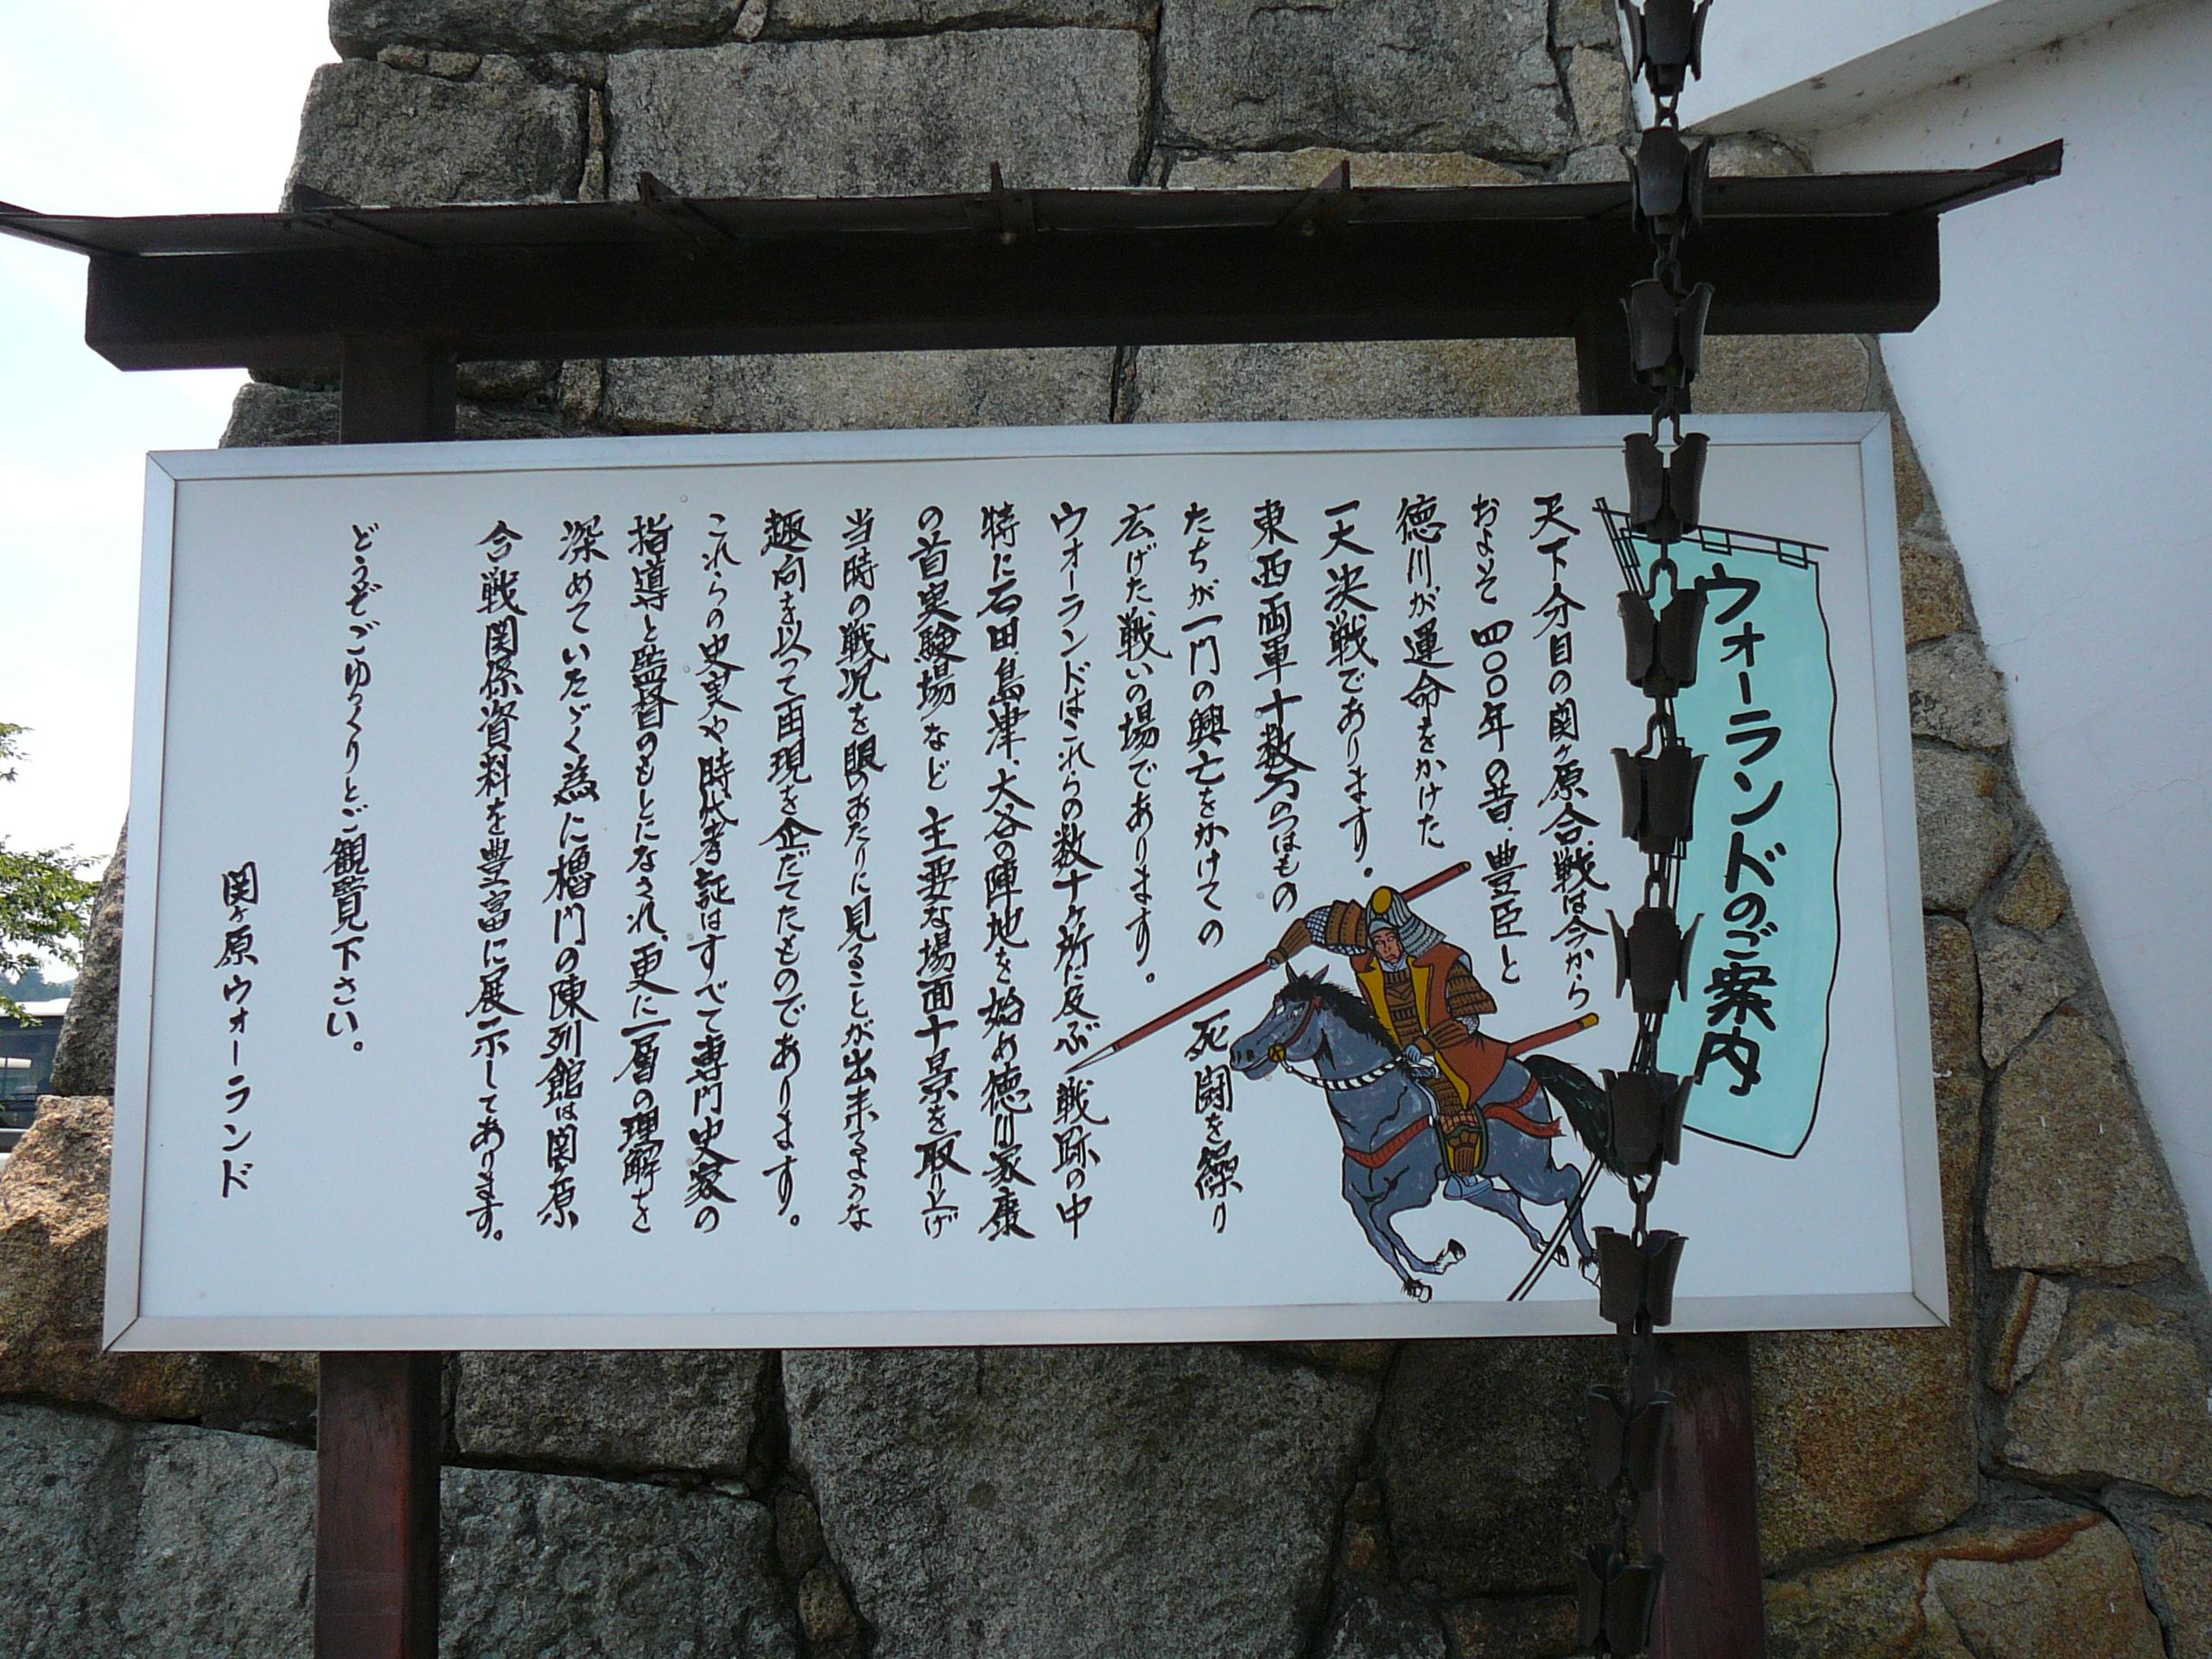 ウォーランドのご案内
天下分目の関ヶ原合戦は今から
およそ四〇〇年の昔、豊臣と
徳川が運命をかけた
一大決戦であります。
東西両軍十数万のつはもの
たちが一門の興亡をかけての死闘を繰り
広げた戦いの場であります。
ウォーランドはこれらの数十ヶ所に及ぶ戦跡の中
特に石田、島津、大谷の陣地を始め徳川家康
の首実験場など主要な場面十景を取り上げ
当時の戦況を眼のあたりに見ることが出来るような
趣向を以って再現を企だてたものであります。
これらの史実や時代考証はすべて専門史家の
指導と監督のもとになされ、更に一層の理解を
深めていたゞく為に櫓門の陳列館は関ヶ原
合戦関係資料を豊富に展示してあります。
どうぞごゆっくりとご観覧下さい。
関ヶ原ウォーランド